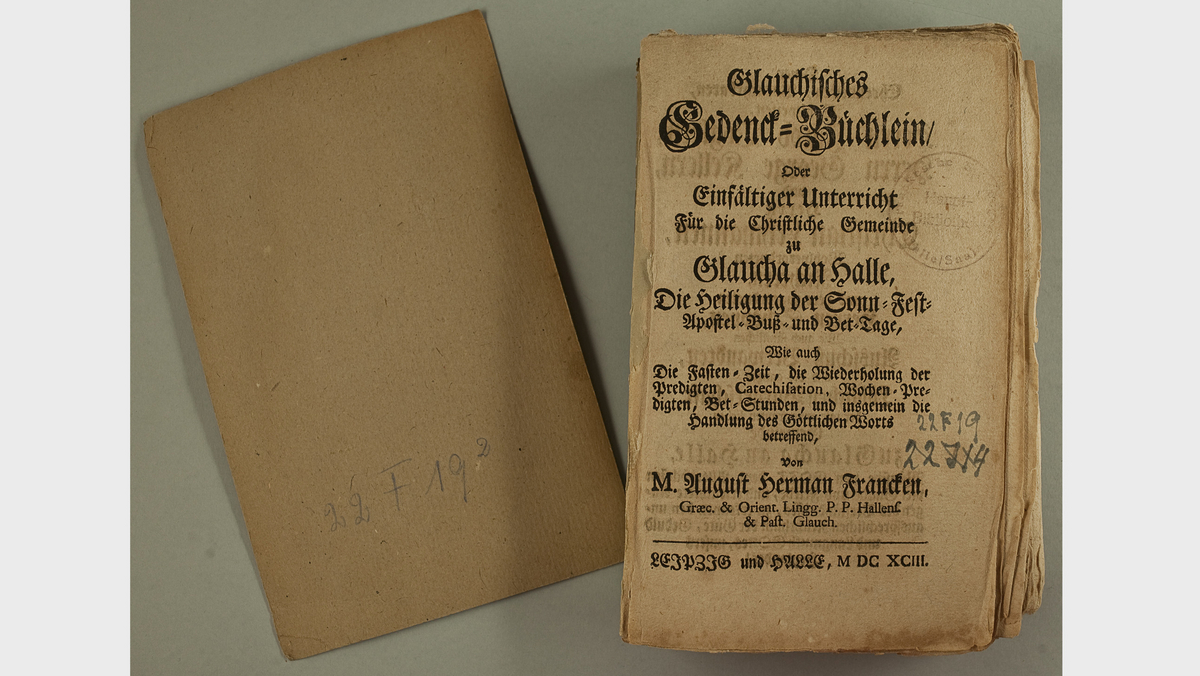 22 F 19²
Glauchisches
Gedenck-Büchlein/
Oder
Einfältiger Unterricht
Für die Christliche Gemeinde
zu
Glaucha an Halle,
Die Heiligung der Sonn-Fest-
Apostel-Buß-und Bet-Tage,
Wie auch
Die Fasten-Zeit, die Wiederholung der
Predigten, Catechisation, Wochen-Pre-
digten, Bet-Stunden, und insgemein die
Handlung des Göttlichen Worts
betreffend,
von
M. August Herman Francken,
Græc. & Orient. Lingg. P. P. Hallens.
& Past. Glauch.
LEIPZIG und HALLE, M DC XCIII.
Haupt-
Bibliothek
Halle/Saale
22 F 19